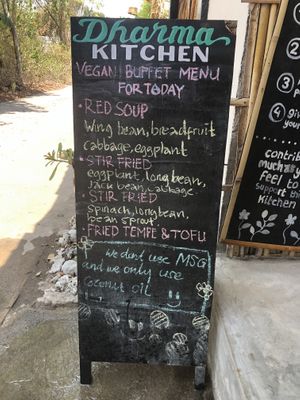 Dharma
KITCHEN
VEGAN BUFFET MENU
FOR TODAY
• RED SOUP
Wing bean, breadfruit
cabbage, eggplant
• STIR FRIED
eggplant, long bean,
Jack bean, cabbage
• STIR FRIED
spinach, long bean,
bean sprout
• FRIED TEMPE & TOFU
we dont use MSG
and we only use
Coconut oil
2
3
4 give
your
contrib
much
feel
support th
Kitchen